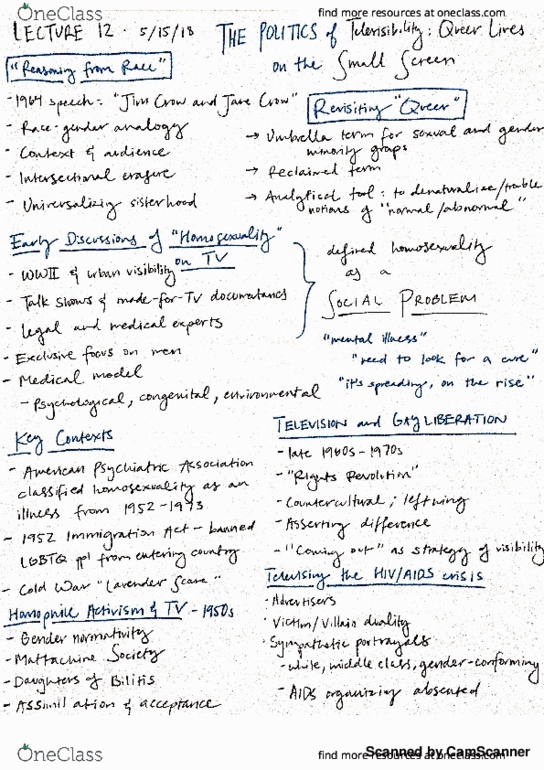 OneClass
find more resources at oneclass.com
LECTURE 12 · 5/15/18
THE POLITICS of Televisibility: Queer Lives
on the Small Screen
"Reasoning from Race"
- 1964 speech: "Jim Crow and Jane Crow"
- Race: gender analogy
- Context & audience
- Intersectional erasure
- Universalizing sisterhood
Revisiting "Queer"
→ Umbrella term for sexual and gender
minority groups
→ Reclaimed term
→ Analytical tool: to denaturalize/trouble
notions of "normal/abnormal"
Early Discussions of "Homosexuality"
on TV
- WWII & urban visibility
- Talk shows & made-for-TV documentaries
- Legal and medical experts
- Exclusive focus on men
- Medical model
- Psychological, congenital, environmental
defined homosexuality
as a
SOCIAL PROBLEM
"mental illness"
"need to look for a cure"
"it's spreading, on the rise"
Key Contexts
- American Psychiatric Association
classified homosexuality as an
illness from 1952-1973
- 1952 Immigration Act - banned
LGBTQ ppl from entering country
- Cold War "Lavender Scare"
Homophile Activism & TV - 1950s
- Gender normativity
- Mattachine Society
- Daughters of Bilitis
- Assimilation & acceptance
TELEVISION and GAY LIBERATION
- late 1960s-1970s
- "Rights Revolution"
- Countercultural; leftwing
- Asserting difference
- "Coming out" as strategy of visibility
Televising the HIV/AIDS crisis
· Advertisers
· Victim/Villain duality
· Sympathetic portrayals
- white, middle class, gender-conforming
- AIDS organizing absented
OneClass
find more resources at oneclass.com
Scanned by CamScanner